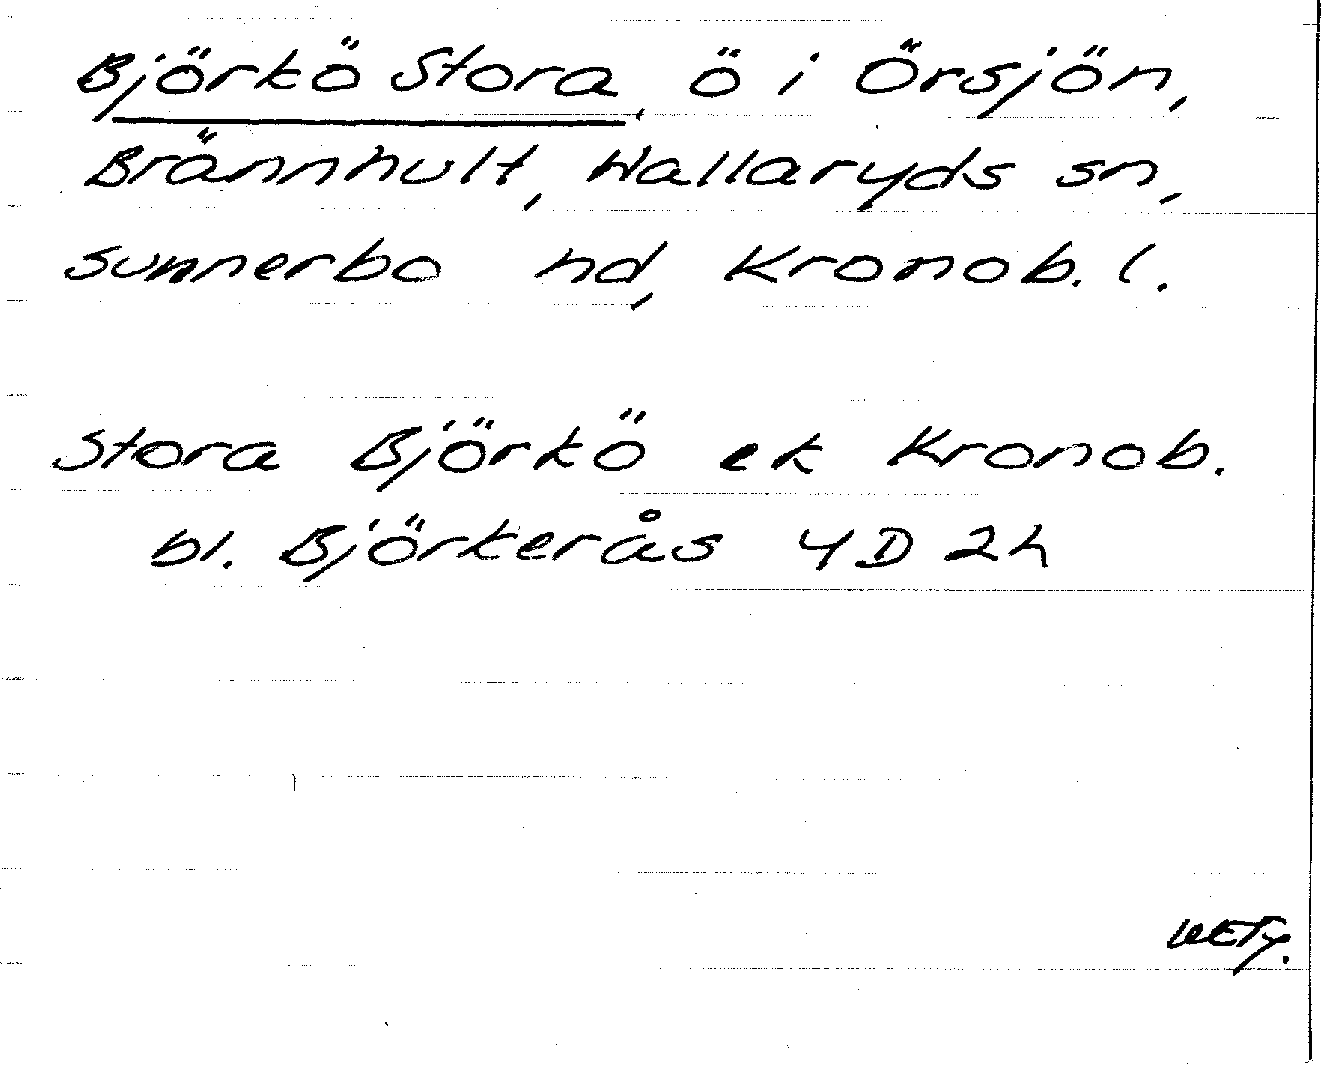 Björkö Stora, ö i Örsjön,
Brännhult, Wallaryds sn,
Sunnerbo hd, Kronob. l.
Stora Björkö ek Kronob.
bl. Björkerås 4D 2h